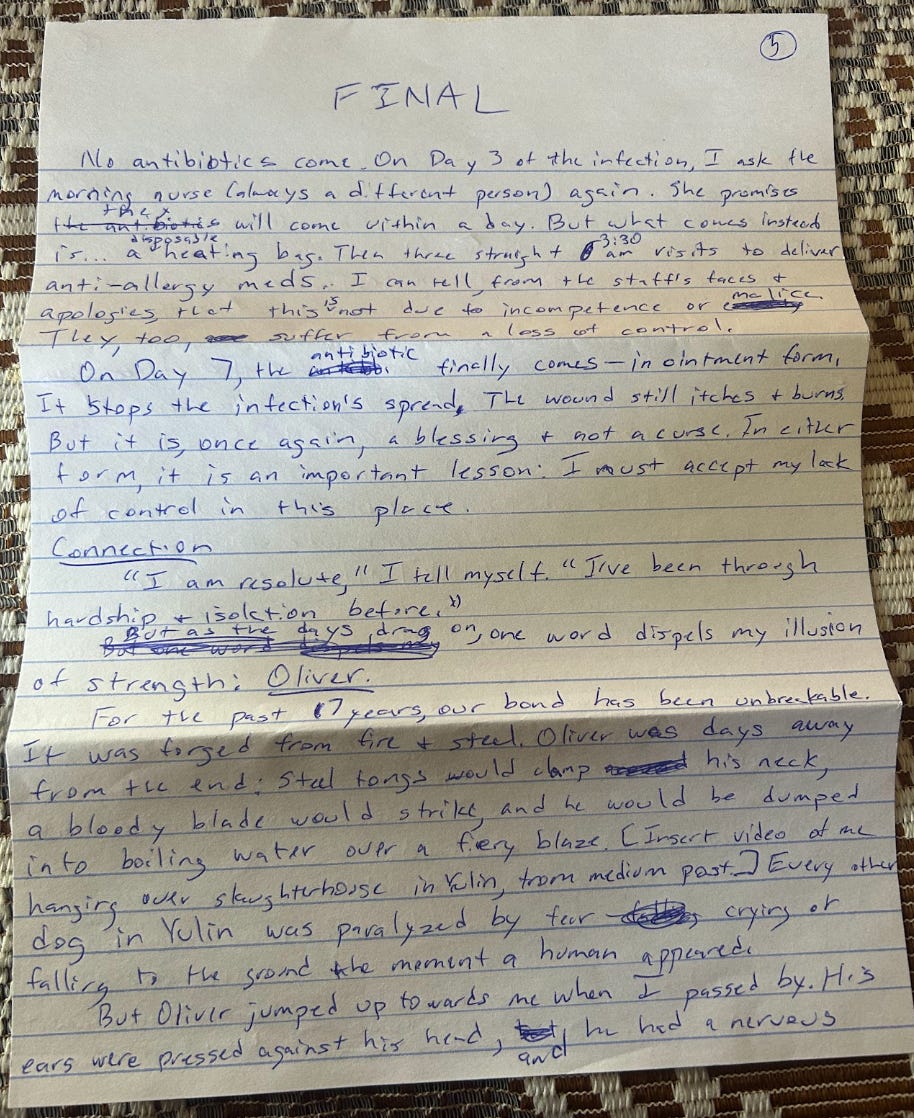 5
FINAL
No antibiotics come. On Day 3 of the infection, I ask the
morning nurse (always a different person) again. She promises
they will come within a day. But what comes instead
is... a disposable heating bag. Then three straight 3:30 am visits to deliver
anti-allergy meds. I can tell, from the staff's faces +
apologies, that this is not due to incompetence or malice.
They, too, suffer from a loss of control.
On Day 7, the antibiotic finally comes — in ointment form.
It stops the infection's spread. The wound still itches + burns.
But it is, once again, a blessing + not a curse. In either
form, it is an important lesson: I must accept my lack
of control in this place.
Connection
"I am resolute," I tell myself. "I've been through
hardship + isolation before."
But as the days drag on, one word dispels my illusion
of strength: Oliver.
For the past 7 years, our bond has been unbreakable.
It was forged from fire + steel. Oliver was days away
from the end: Steel tongs would clamp his neck,
a bloody blade would strike, and he would be dumped
into boiling water over a fiery blaze. [Insert video of me
hanging over slaughterhouse in Yulin, from medium post.] Every other
dog in Yulin was paralyzed by fear - crying or
falling to the ground the moment a human appeared.
But Oliver jumped up towards me when I passed by. His
ears were pressed against his head, and he had a nervous